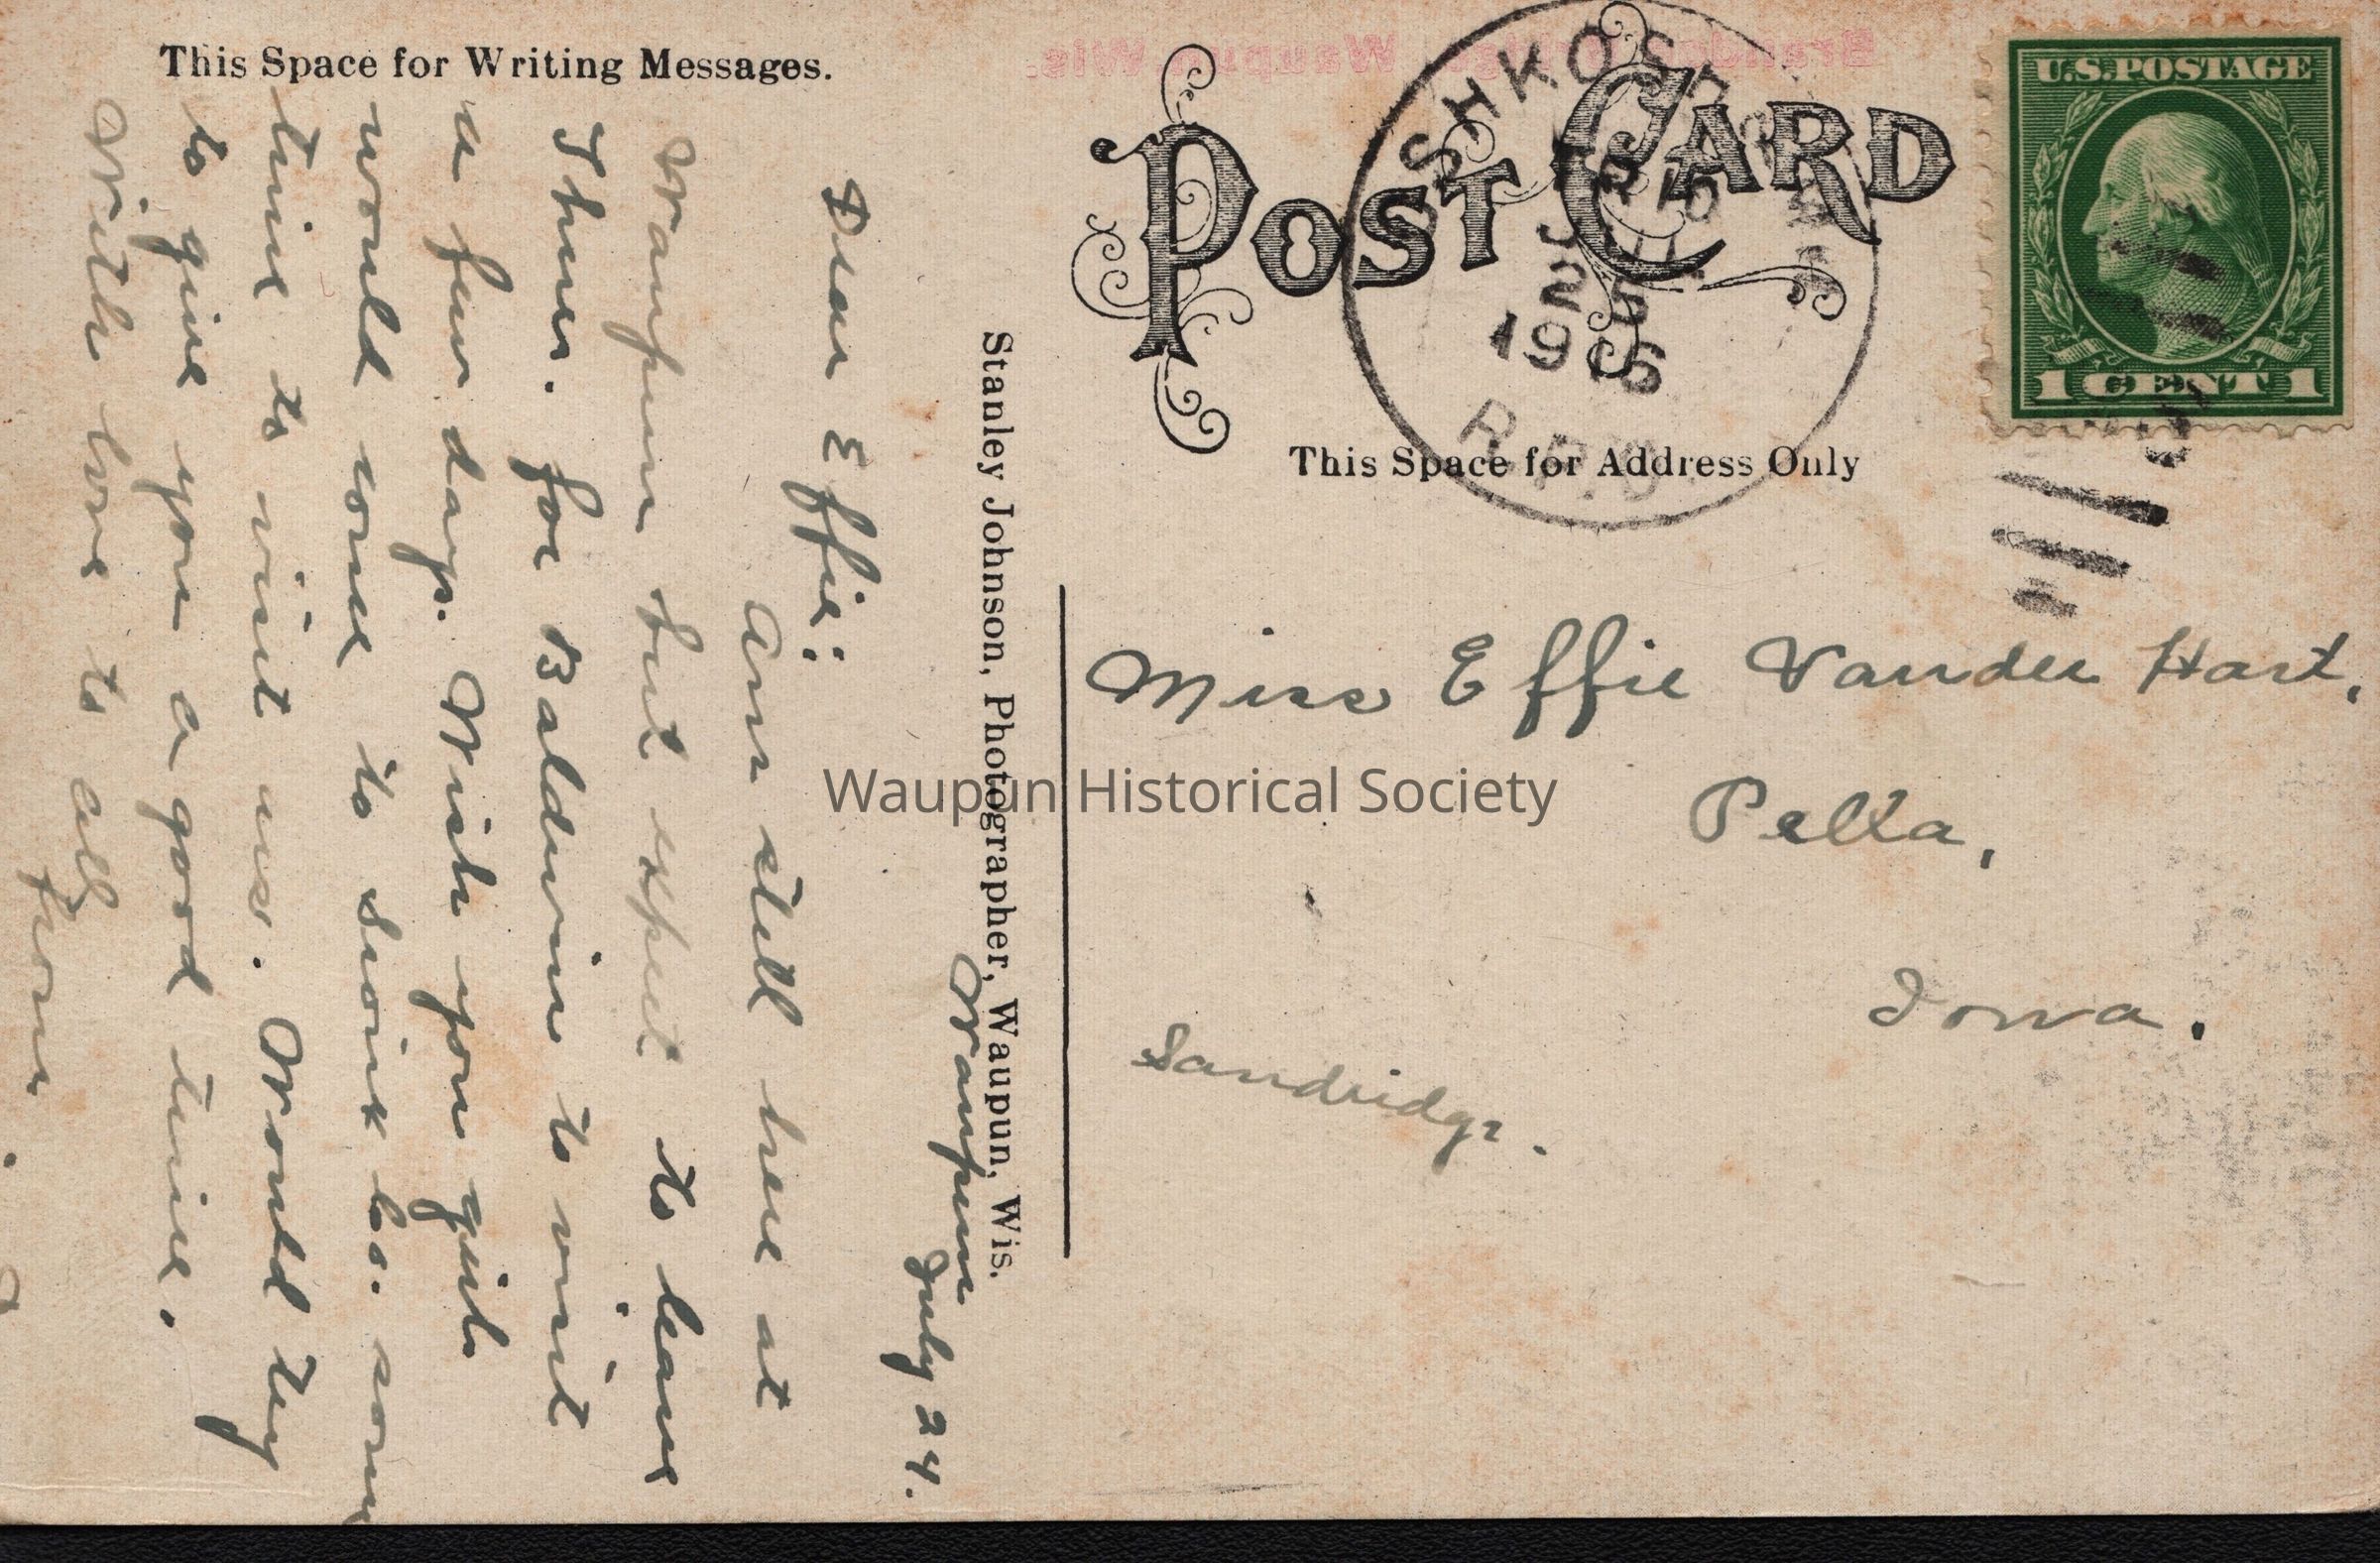 This Space for Writing Messages.
POST CARD
U.S. POSTAGE
1 CENT 1
OSHKOSH
TR
JUL
25
1916
R.P.O.
This Space for Address Only
Stanley Johnson, Photographer, Waupun, Wis.
Waupun
July 24.
Dear Effie:
Am still here at
Waupun but expect to leave
Thur. for Baldwin to visit
a few days. Wish you girls
would come to Sioux Co. some
time to visit us. Would try
to give you a good time.
With love to all
from
Miss Effie Vander Hart,
Pella,
Iowa.
Sandridge.
Waupun Historical Society